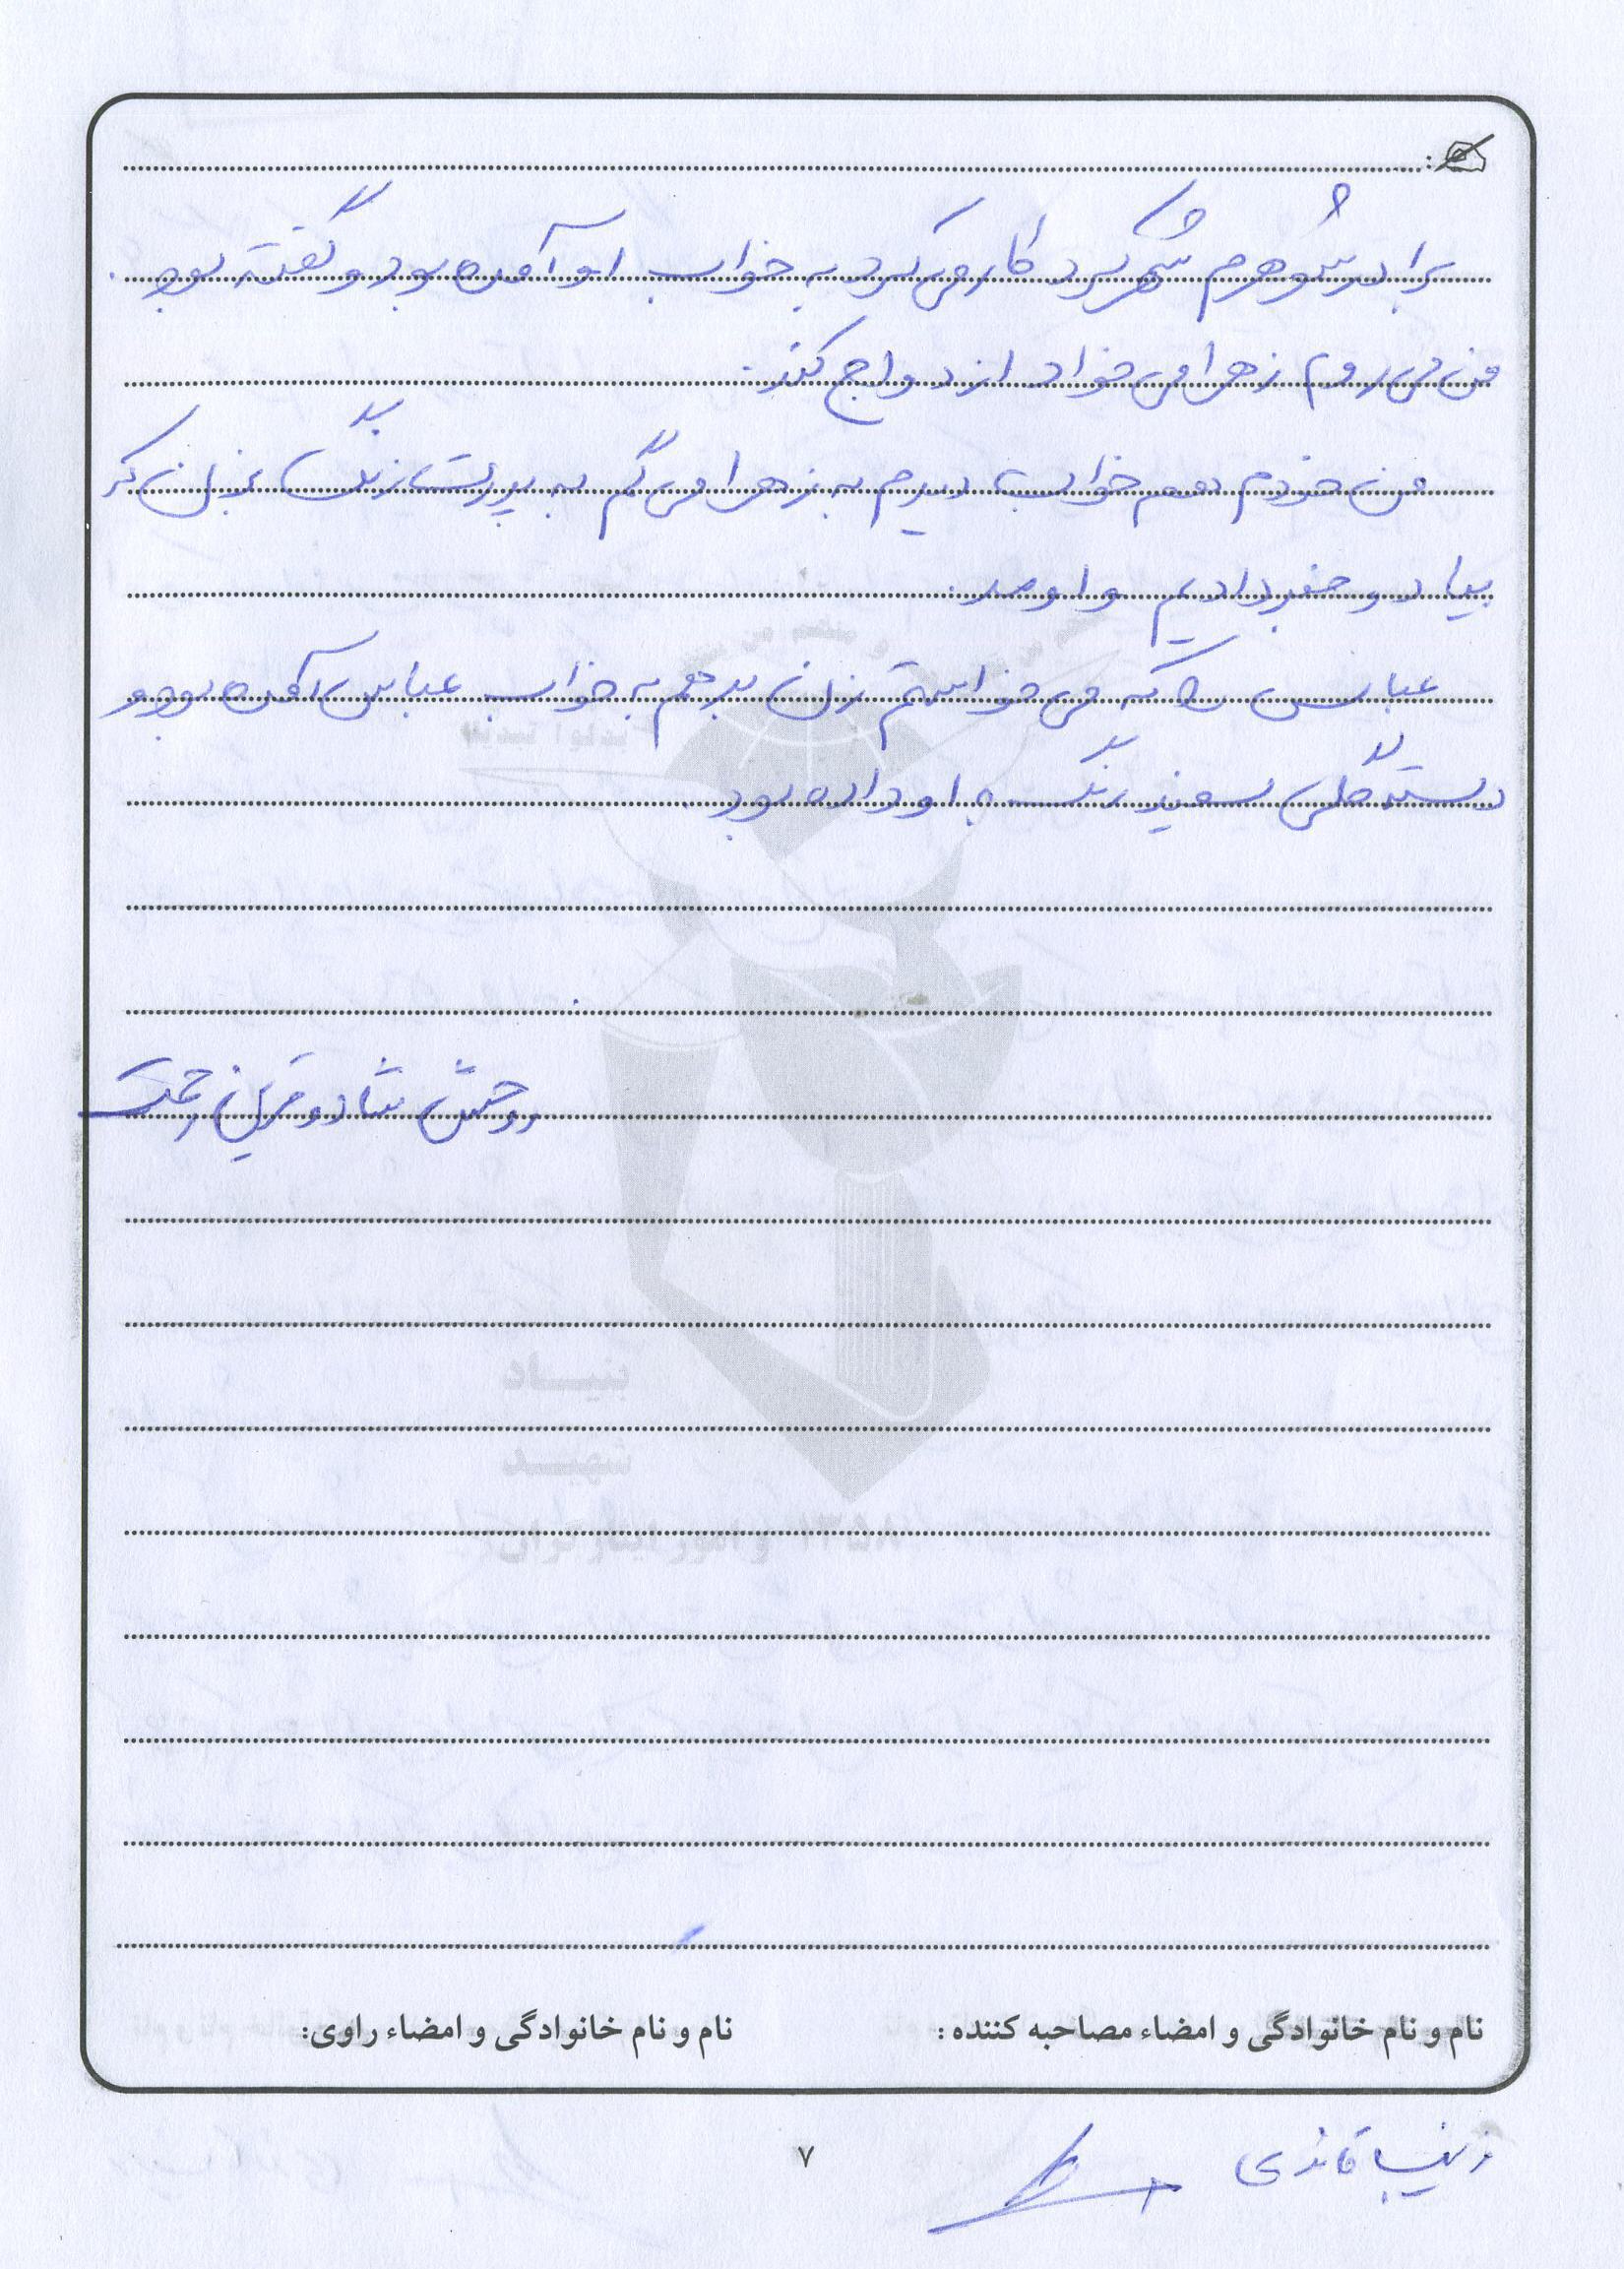 برادر شوهرم شهرکرد کار می‌کرد به خواب او آمده بود و گفته بود.
من می‌روم زهرا می‌خواد ازدواج کند.
من خودم هم خواب دیدم به زهرا می‌گم به پدرت زنگ بزن که
بیاد و خبر دادیم و اومد.
عباس که می‌خواستم زن بدهم به خواب عباس آمده بود و
دسته گلی سفید رنگ به او داده بود.
روحش شاد و قرین رحمت
بنیاد
شهید
و امور ایثارگران
۱۳۵۸
نام و نام خانوادگی و امضاء مصاحبه کننده :
نام و نام خانوادگی و امضاء راوی:
۷
زینب قائدی